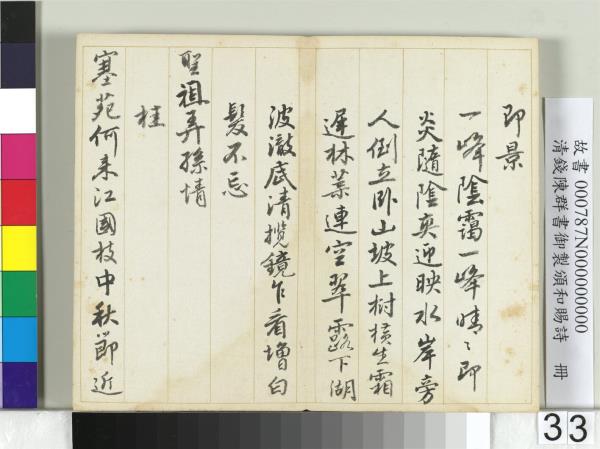 即景
一峰陰靄一峰晴〻即
炎隨陰爽迎映水岸旁
人倒立卧山坡上樹橫生霜
遲林葉連空翠露下湖
波澈底清攬鏡乍看增白
髮不忘
聖祖弄孫情
桂
塞苑何来江國枝中秋節近
故書 000787N000000000
清錢陳群書御製頒和賜詩 冊
33